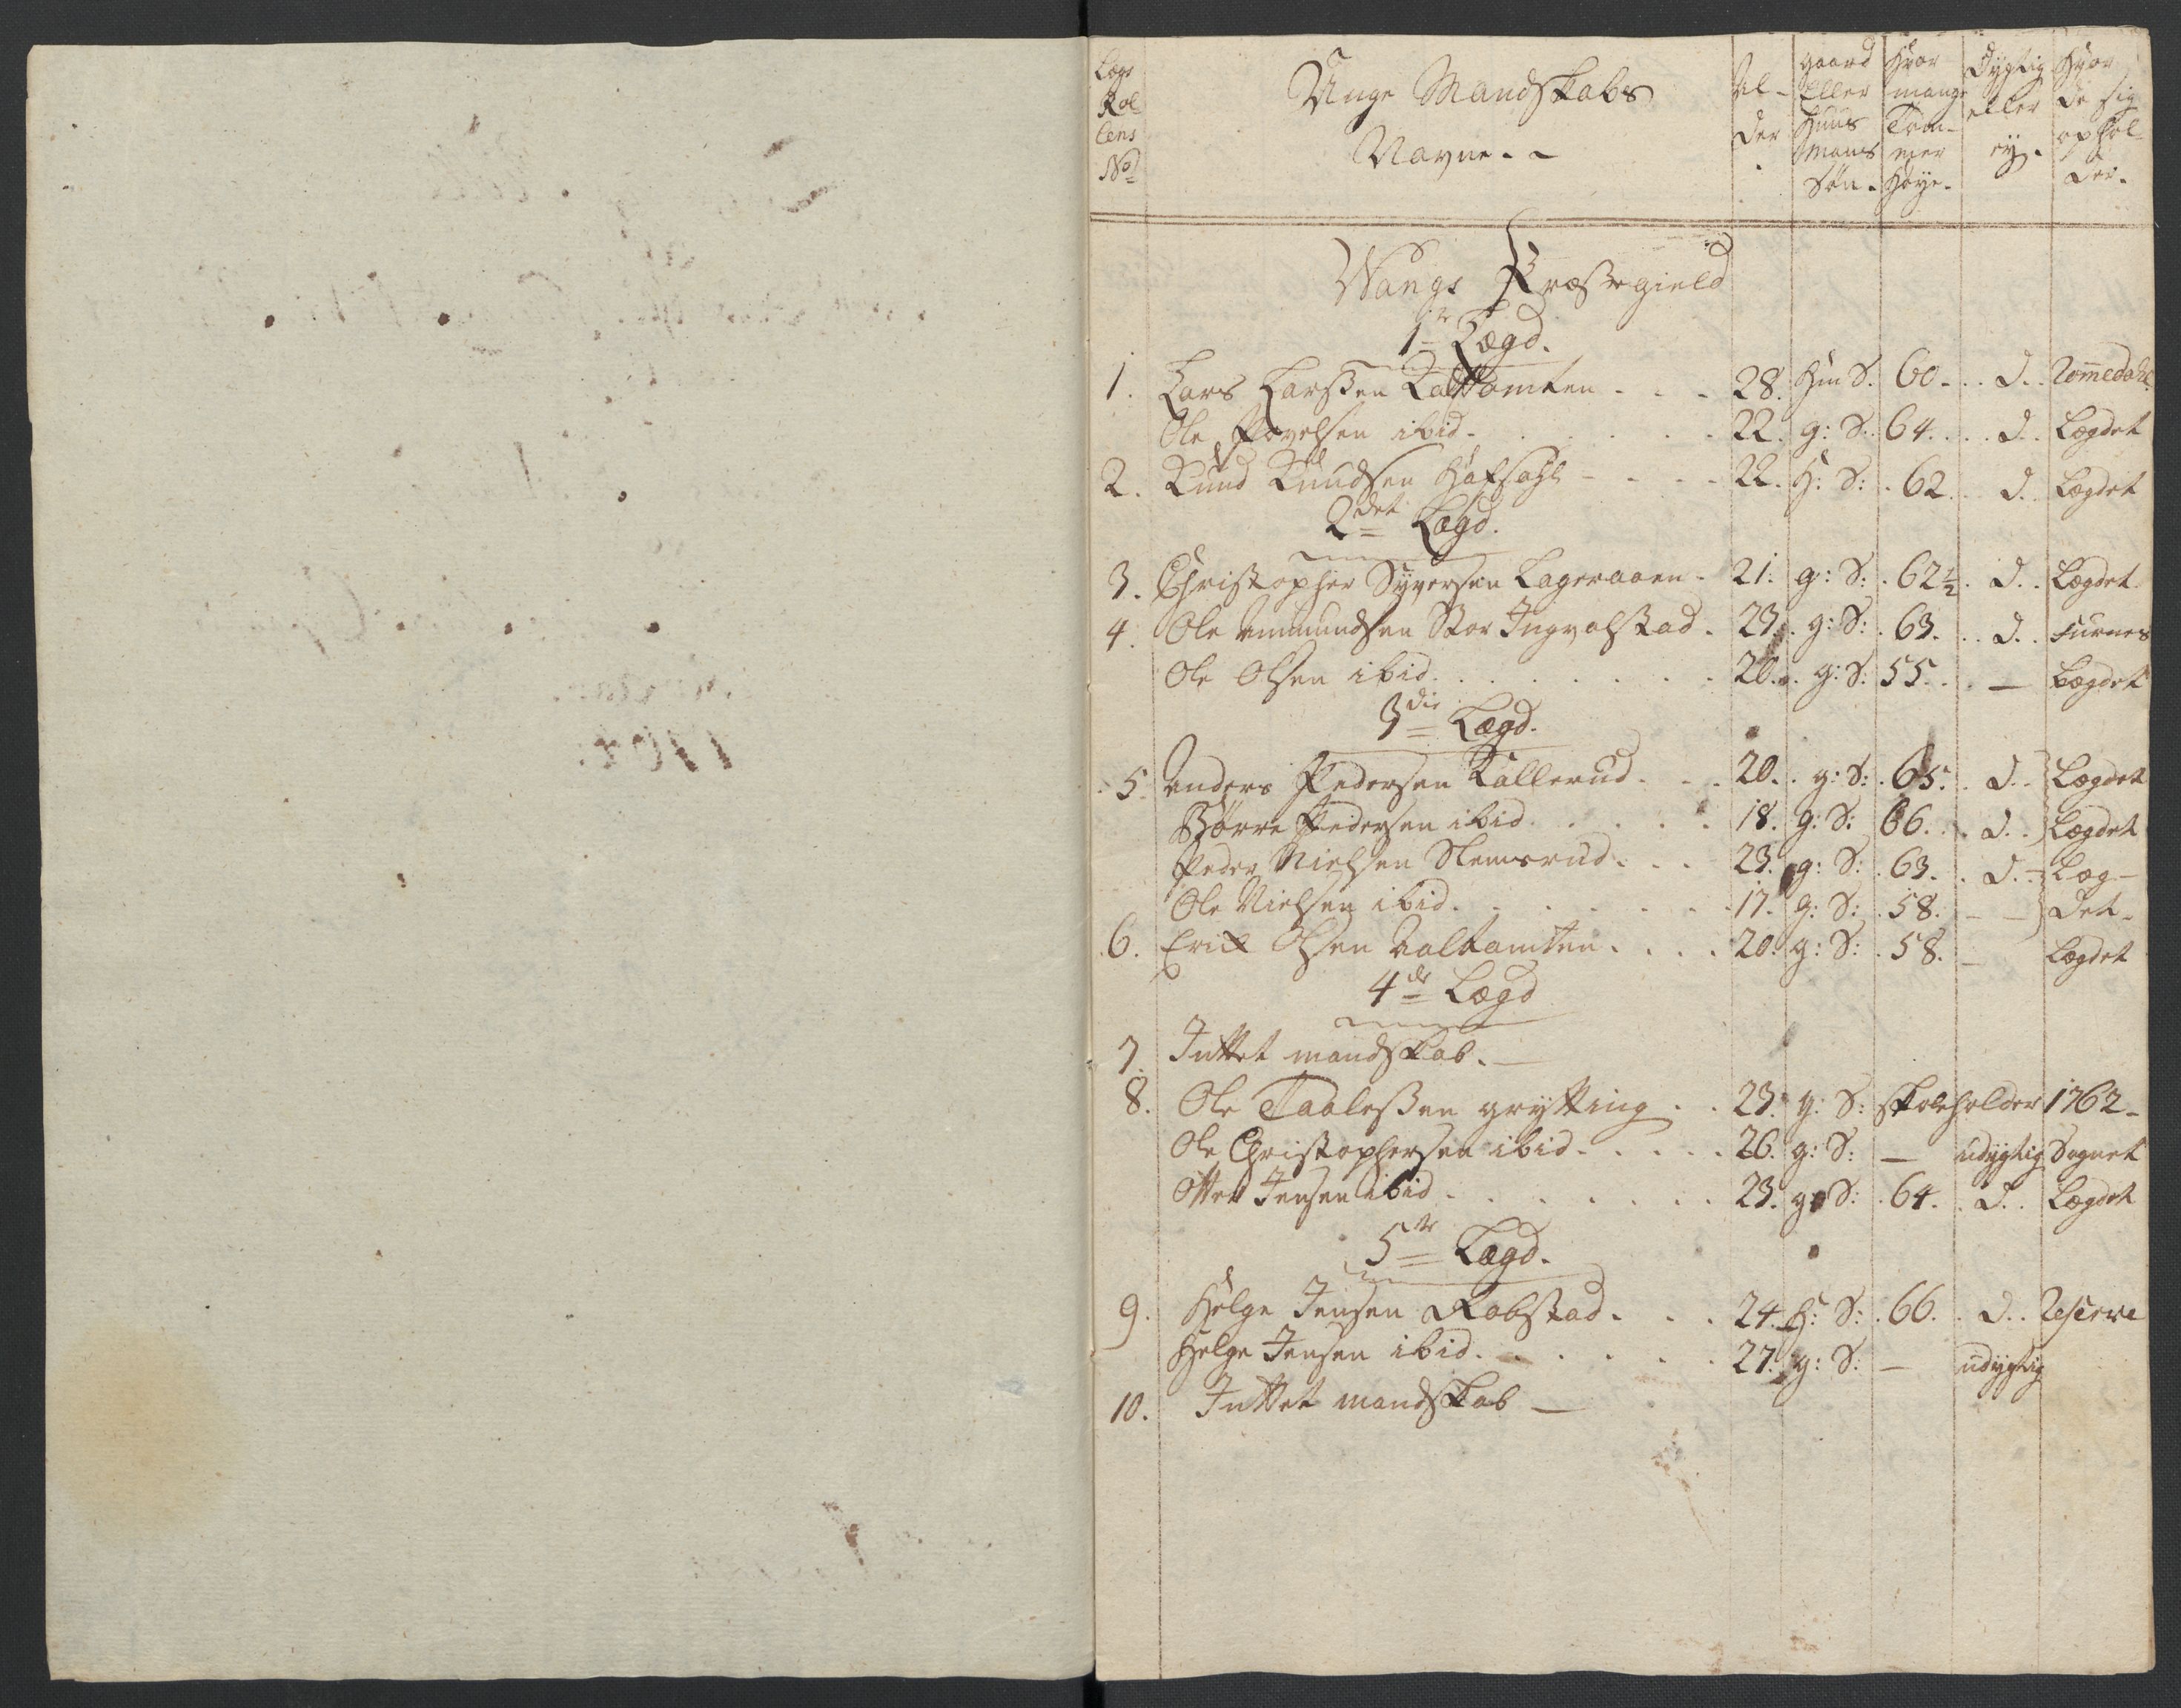 Lægs Rol lens No
Unge Mandskabs Navne. -
Al- der
gaard Eller Huus Mans Søn.
Hvor mange Tom- mer Høye.
Dygtig eller ey.
Hvor de sig ophol- der.
Wangs Præstegield
1te Lægd.
1. Lars Larssen . . . 28. Hm S. 60. . . d. . Romedahl
Ole Povelsen ibid. . . . 22. g: S. 64. . . d. . Lægdet
2. Knud Knudsen Hafsahl - . . . 22. H: S: . 62. . d. . Lægdet
2det Lægd.
3. Christopher Syversen Lageraaen. 21. g: S: . 62½. d. . Lægdet
4. Ole Ammundsen Stor Ingvalstad. 23. g: S: . 63. . . d. . Furnes
Ole Olsen ibid. . . . 20. . g: S: 55. . . — Lægdet
3die Lægd.
5. Anders Pedersen Kallerud. . . 20. . g: S: . 65. . d. . Lægdet
Børre Pedersen ibid . . . 18. g: S: 66. . . d. . Lægdet
Peder Nielsen Slemsrud. . . 23. g: S: . 63. . d. - Læg-
Ole Nielsen ibid. . . . 17. g: S: . 58. - - Det.
6. Erich Olsen . . . . 20. g: S: . 58. - Lægdet
4de Lægd
7. Inttet mandskab. —
8. Ole Taalessen grytting . . 23. g: S: skoleholder 1762 -
Ole Christophersen ibid. . . . 26. g: S: — udygtig Sognet
Otter Jensen ibid . . . 23. g: S: . 64. . d. . Lægdet
5te Lægd.
9. Helge Jensen Robstad. . . 24. H: S: . 66. . d. . Reserve
Helge Jensen ibid. . . . 27. g: S: — udygtig
10. Inttet mandskab —